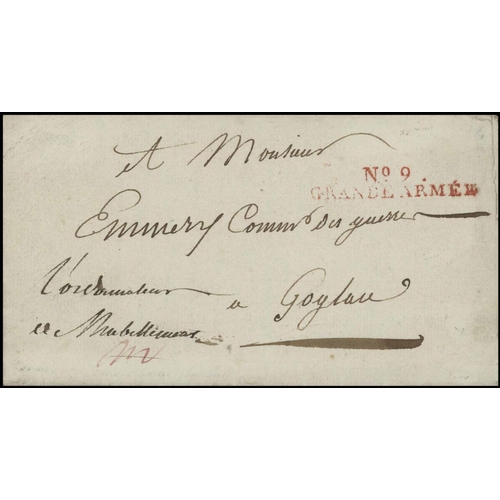 A Monsieur
No 9.
GRANDE ARMÉE
Emmery Commre des guerres
L'ordonnateur
a Goglau